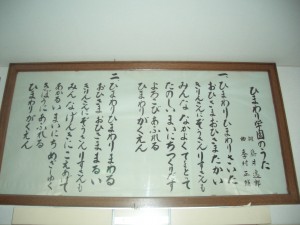 ひまわり学園のうた
一、ひまわりひまわりさいた
おひさまおひさまたかい
きりんさんぞうさんりすさんも
みんななかよくてをとって
たのしいまいにちつくりだす
よろこびあふれる
ひまわりがくえん
二、ひまわりひまわりまわる
おひさまおひさままるい
きりんさんぞうさんりすさんも
みんなげんきにこえあげて
あかるいまいにちめざしゆく
きぼうにあふれる
ひまわりがくえん